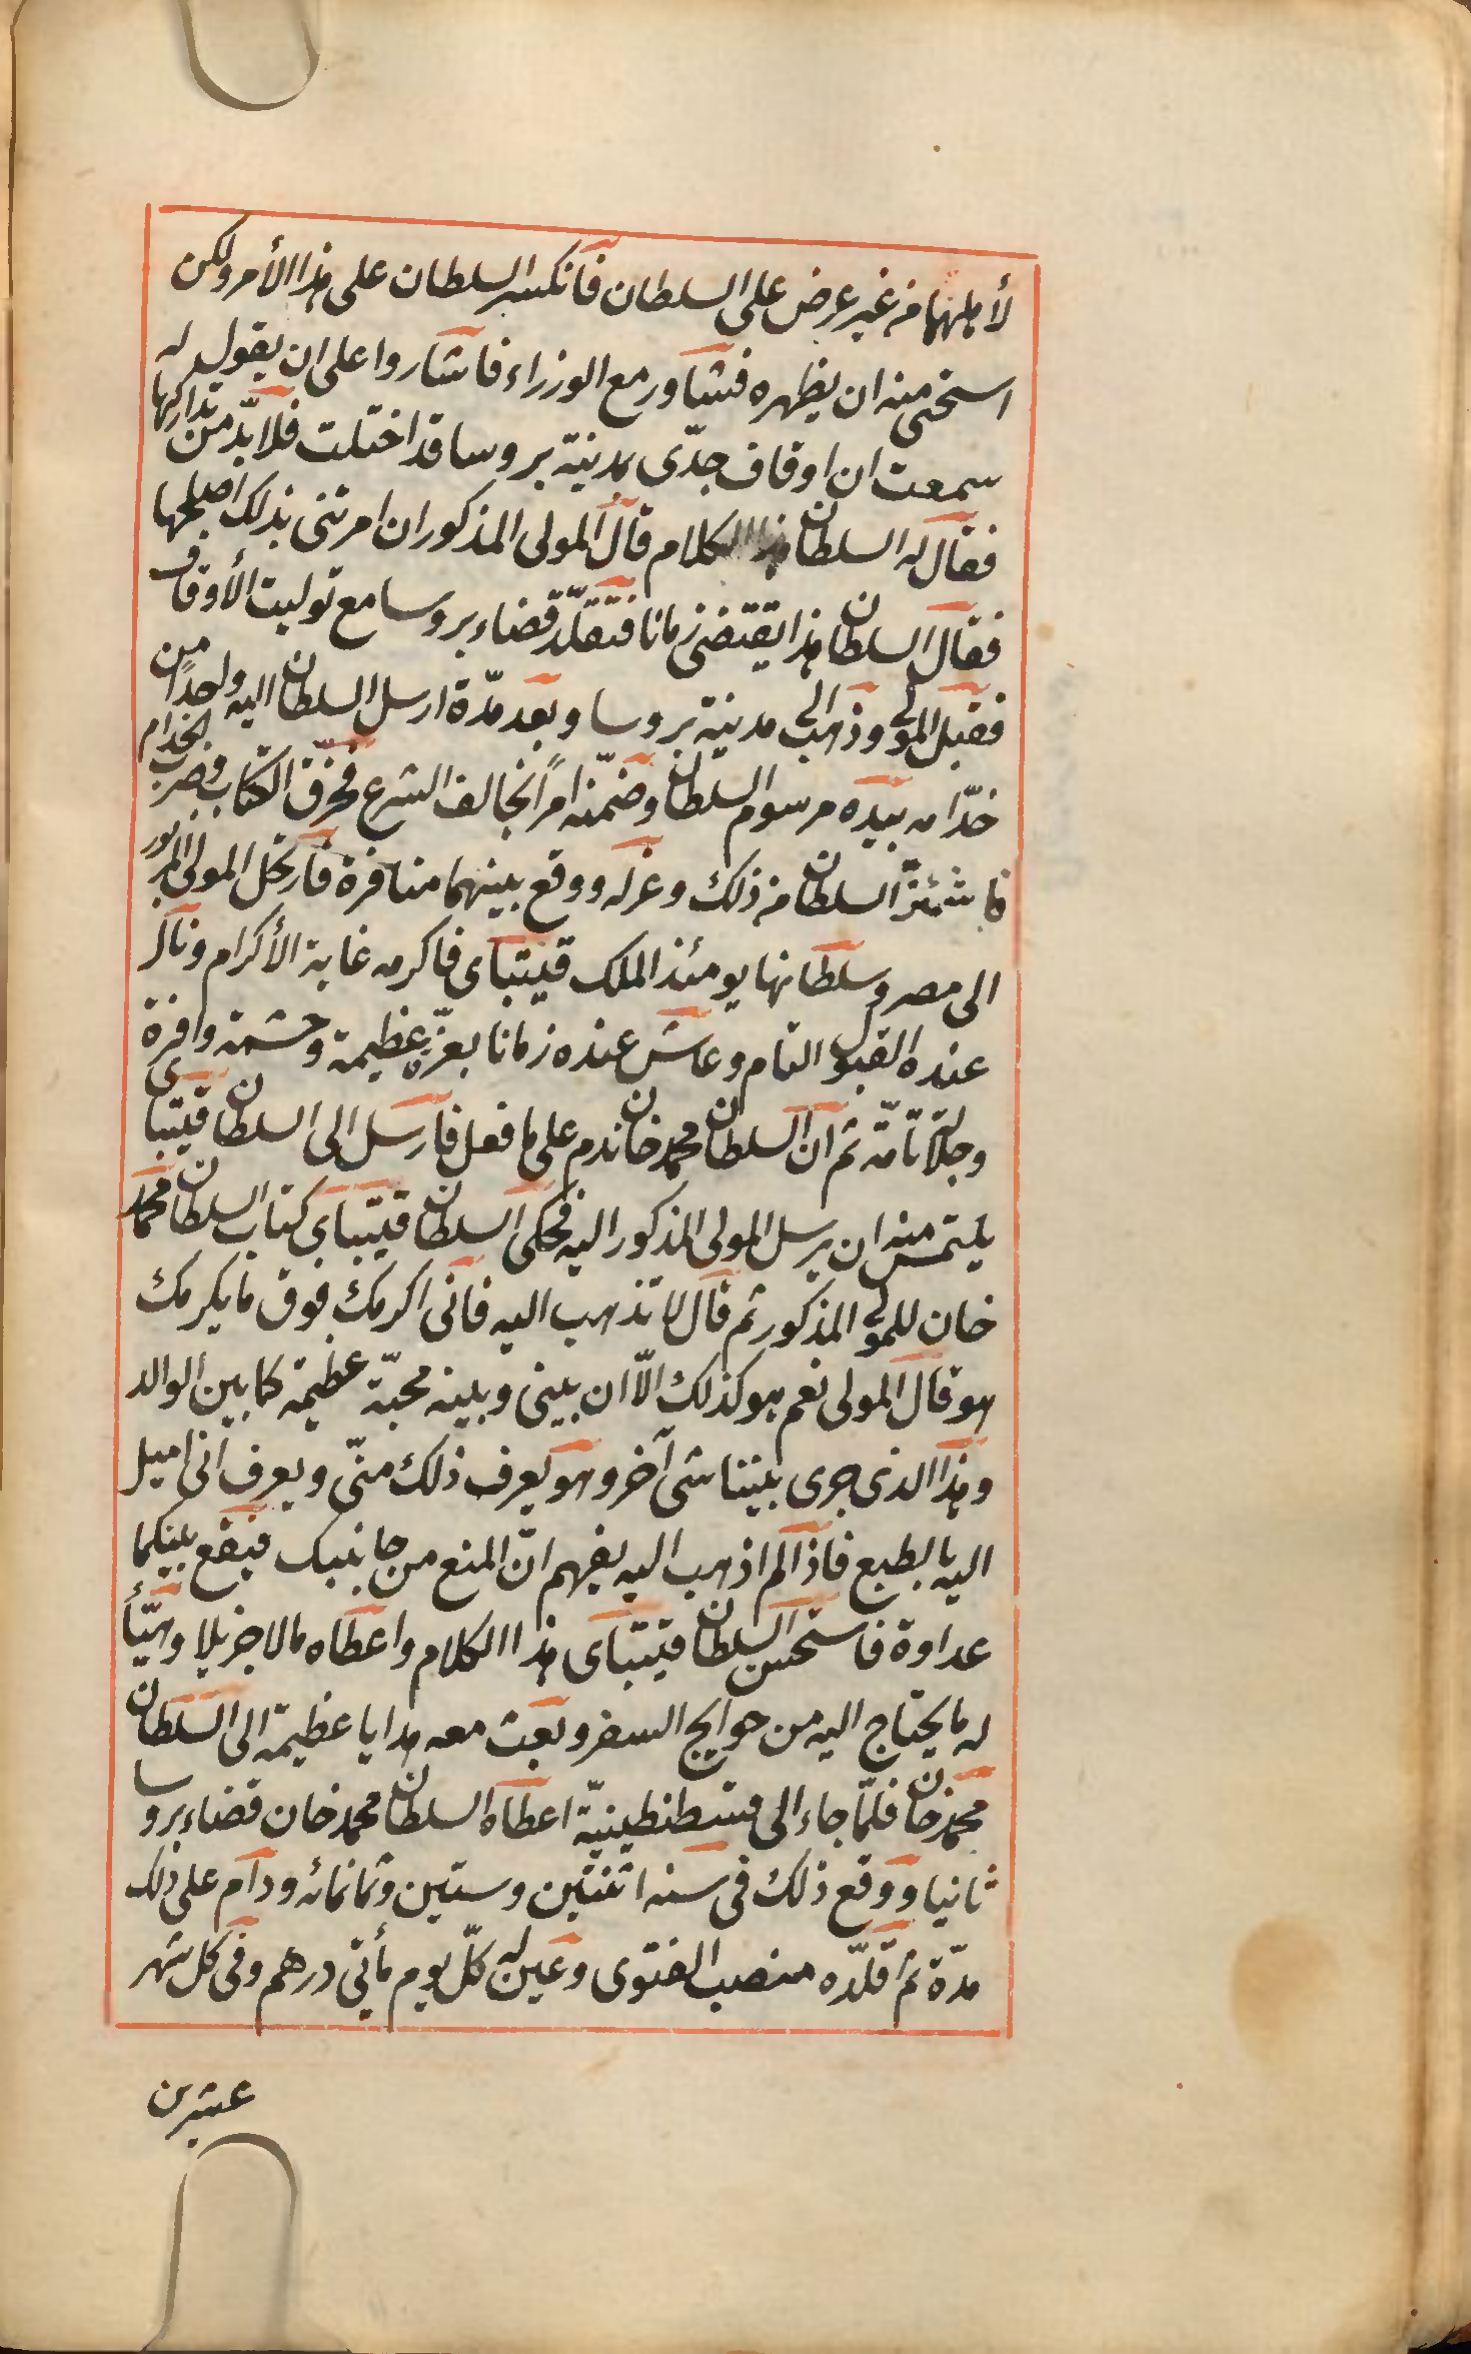 لأهلهما من غير عرض على السلطان فانكسر السلطان على هذا الأمر ولكن
استحيى منه ان يظهره فشاور مع الوزراء فاشاروا على ان يقول له
سمعت ان اوقاف جدّى بمدينة بروسا قد اختلت فلا بدّ من تداركها
فقال له السلطان هذا الكلام قال المولى المذكور ان امرتنى بذلك اصلحها
فقال السلطان هذا يقتضى زمانا فتقلّد قضاء بروسا مع توليت الأوقاف
فقبل المولى وذهب الى مدينة بروسا وبعد مدّة ارسل السلطان اليه واحدًا من
خدّامه بيده مرسوم السلطان وضمّنه امرًا يخالف الشرع فخرّق الكتاب وضرب الخدام
فاشمئزّ السلطان من ذلك وعزله ووقع بينهما منافرة فارتحل المولى المزبور
الى مصر وسلطانها يومئذ الملك قيتباى فاكرمه غاية الأكرام ونال
عنده القبول التام وعاش عنده زمانا بعزّة عظيمة وحشمة وافرة
وجلالة تامّة ثم ان السلطان محمد خان ندم على ما فعل فارسل الى السلطان قيتباى
يلتمس منه ان يرسل المولى المذكور اليه فحكى السلطان قيتباى كتاب السلطان محمد
خان للمولى المذكور ثم قال لا تذهب اليه فانى اكرمك فوق ما يكرمك
هو قال المولى نعم هو كذلك الّا ان بينى وبينه محبّة عظيمة كما بين الوالد
وهذا الذى جرى بيننا شى آخر وهو يعرف ذلك منّى ويعرف انى اميل
اليه بالطبع فاذا لم اذهب اليه يفهم انّ المنع من جانبك فيقع بينكما
عداوة فاستحسن السلطان قيتباى هذا الكلام واعطاه مالا جزيلا وهيّأ
له ما يحتاج اليه من حوايج السفر وبعث معه هدايا عظيمة الى السلطان
محمد خان فلمّا جاء الى قسطنطينيّة اعطاه السلطان محمد خان قضاء بروسا
ثانيا ووقع ذلك فى سنه اثنتين وستين وثمانمائه ودام على ذلك
مدّة ثم قلّده منصب الفتوى وعين له كلّ يوم مأتى درهم وفى كل شهر
عشرين